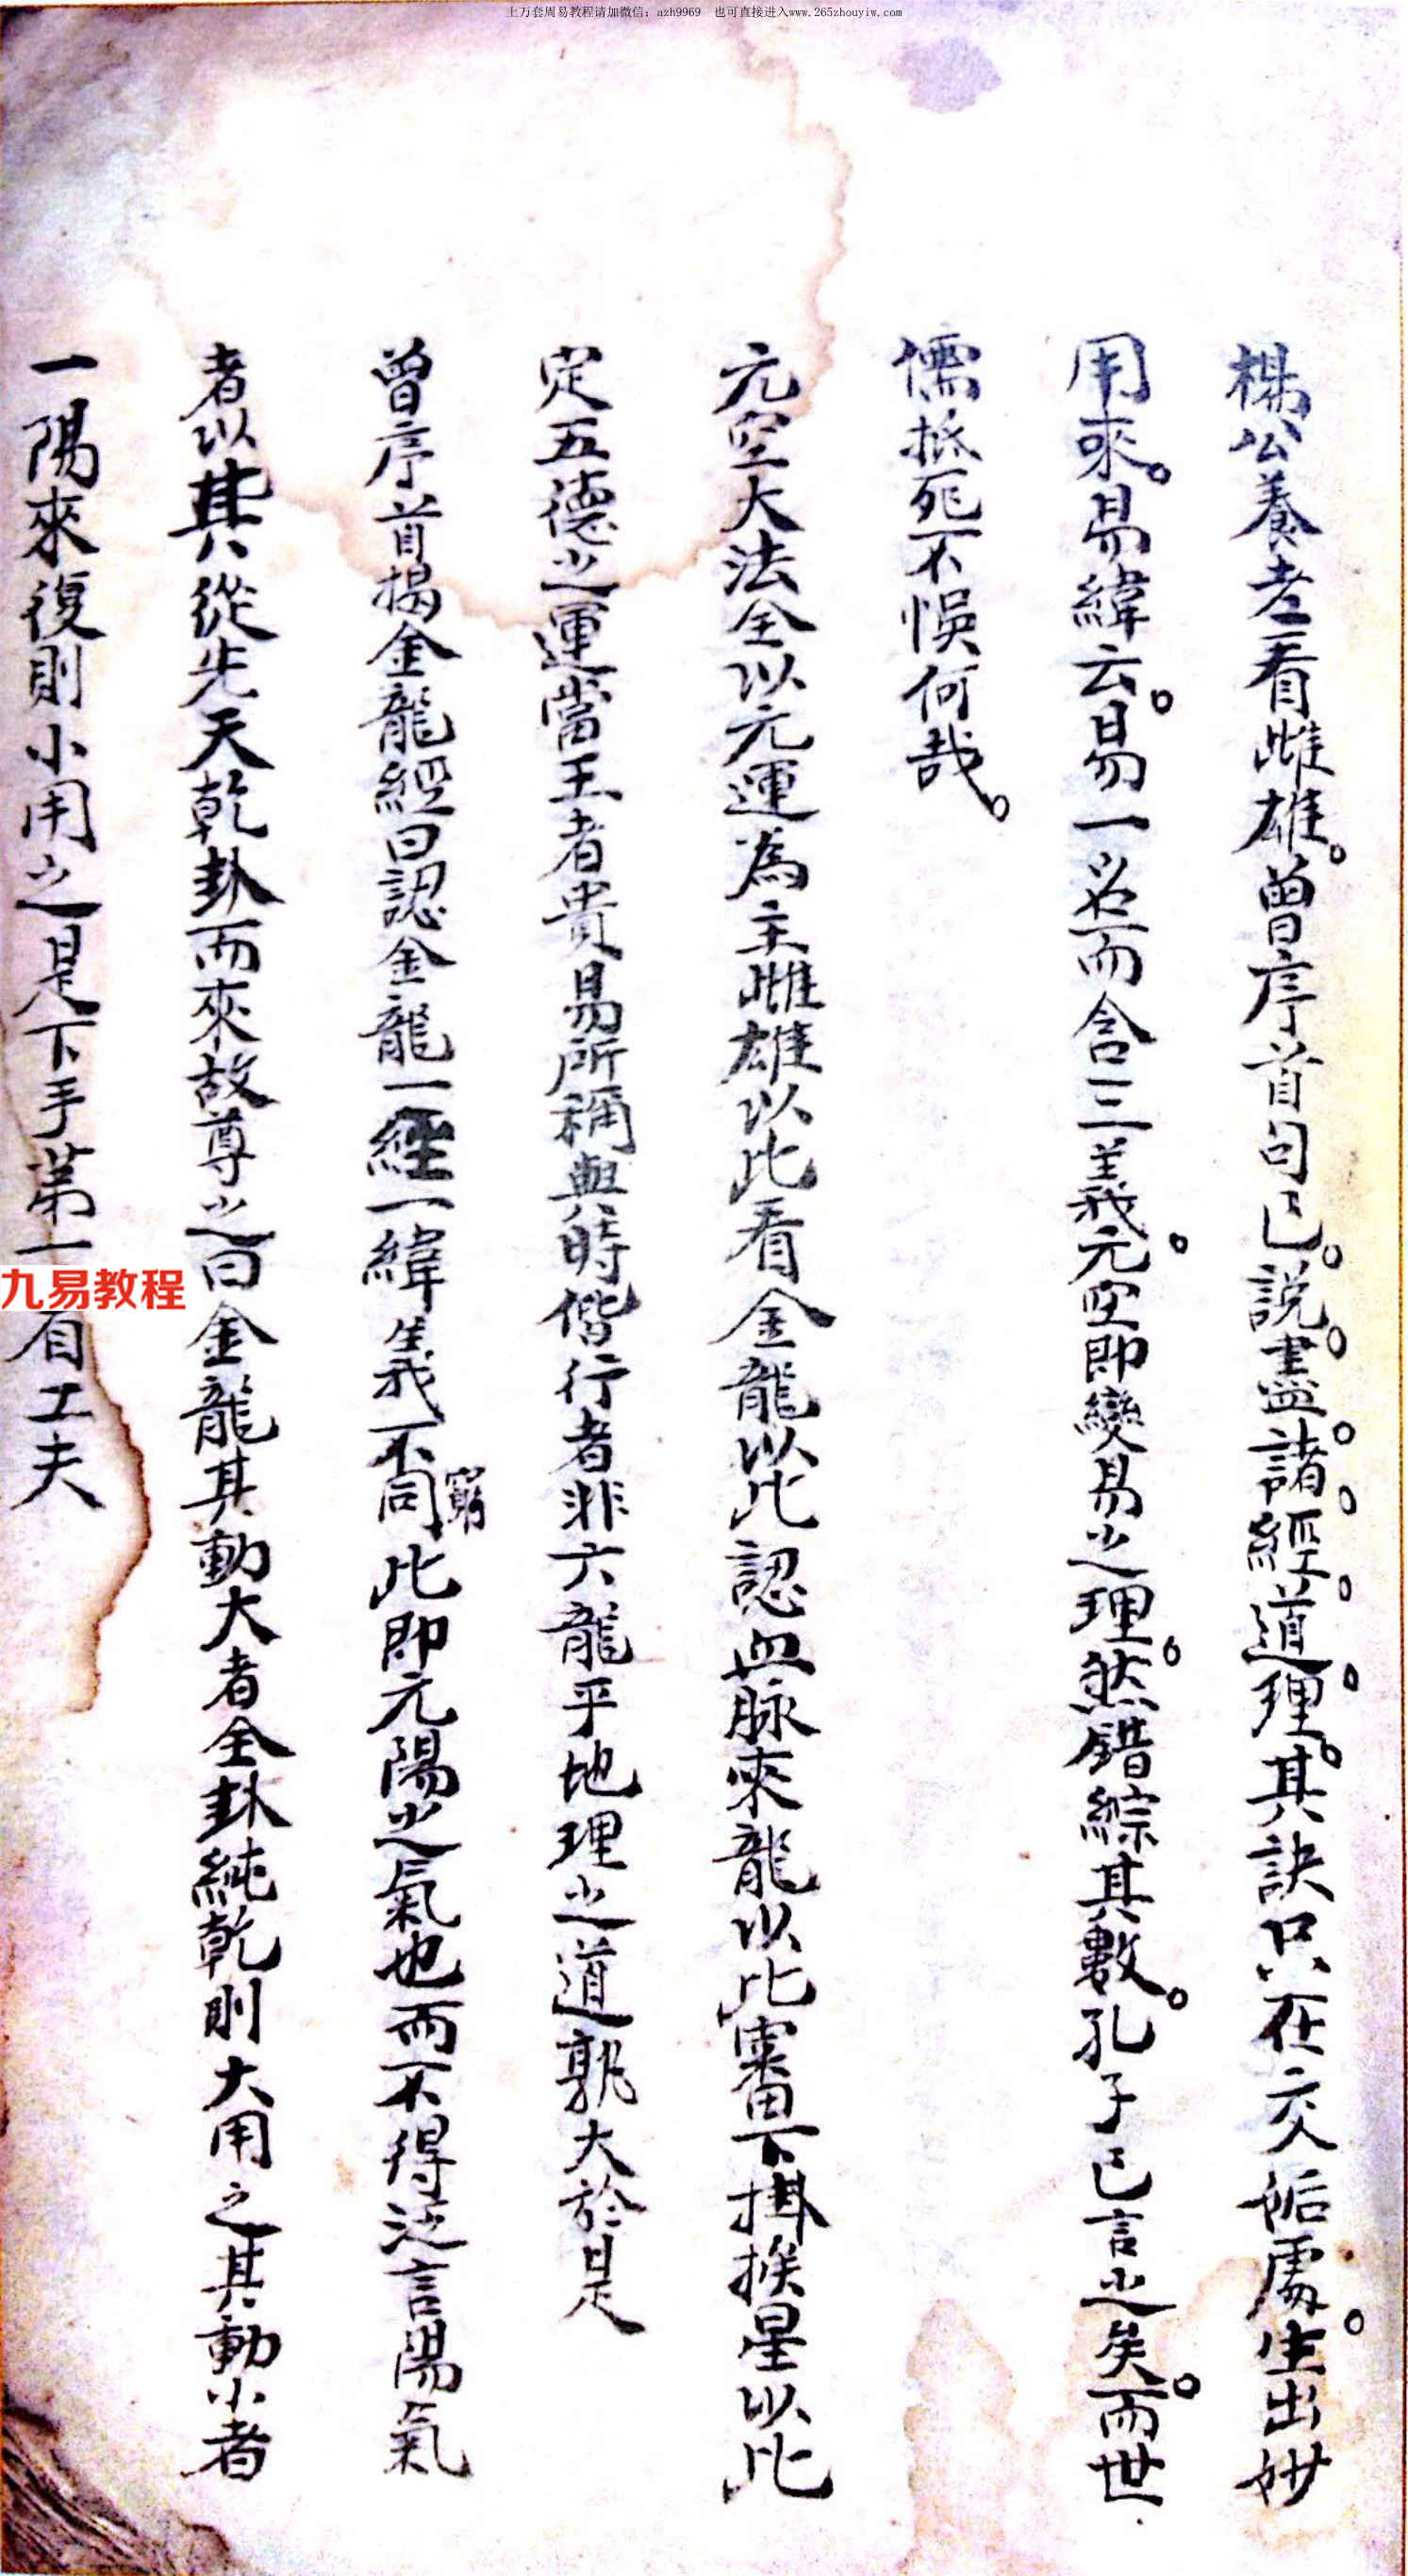 上万套周易教程请加微信：azh9969 也可直接进入www.265zhouyiw.com
楊公養老看雌雄。曾序首句已。說。盡。諸。經。道。理。其訣只在交姤處。生出妙
用來。易緯云。易一名而含三義。元空即變易之理。然錯綜其數。孔子已言之矣。而世
儒抵死不悞何哉。
元空大法全以元運為主雌雄以此看金龍以此認血脉來龍以此審下掛挨星以此
定五德之運當王者貴易所稱與時偕行者非六龍乎地理之道孰大於是
曾序首揭金龍經曰認金龍一經一緯義不同窮此即元陽之氣也而不得泛言陽氣
者以其從先天乾卦而來故尊之曰金龍其動大者全卦純乾則大用之其動小者
一陽來復則小用之是下手第一
九易教程
工夫